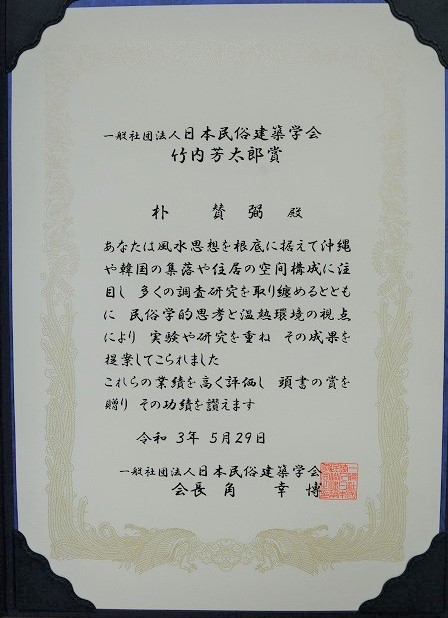 一般社団法人日本民俗建築学会
竹内芳太郎賞
朴 賛弼 殿
あなたは風水思想を根底に据えて沖縄
や韓国の集落や住居の空間構成に注
目し 多くの調査研究を取り纏めるととも
に 民俗学的思考と温熱環境の視点
により 実験や研究を重ね その成果を
提案してこられました
これらの業績を高く評価し 頭書の賞を
贈り その功績を讃えます
令和 3年 5月29日
一般社団法人日本民俗建築学会
会長 角 幸博